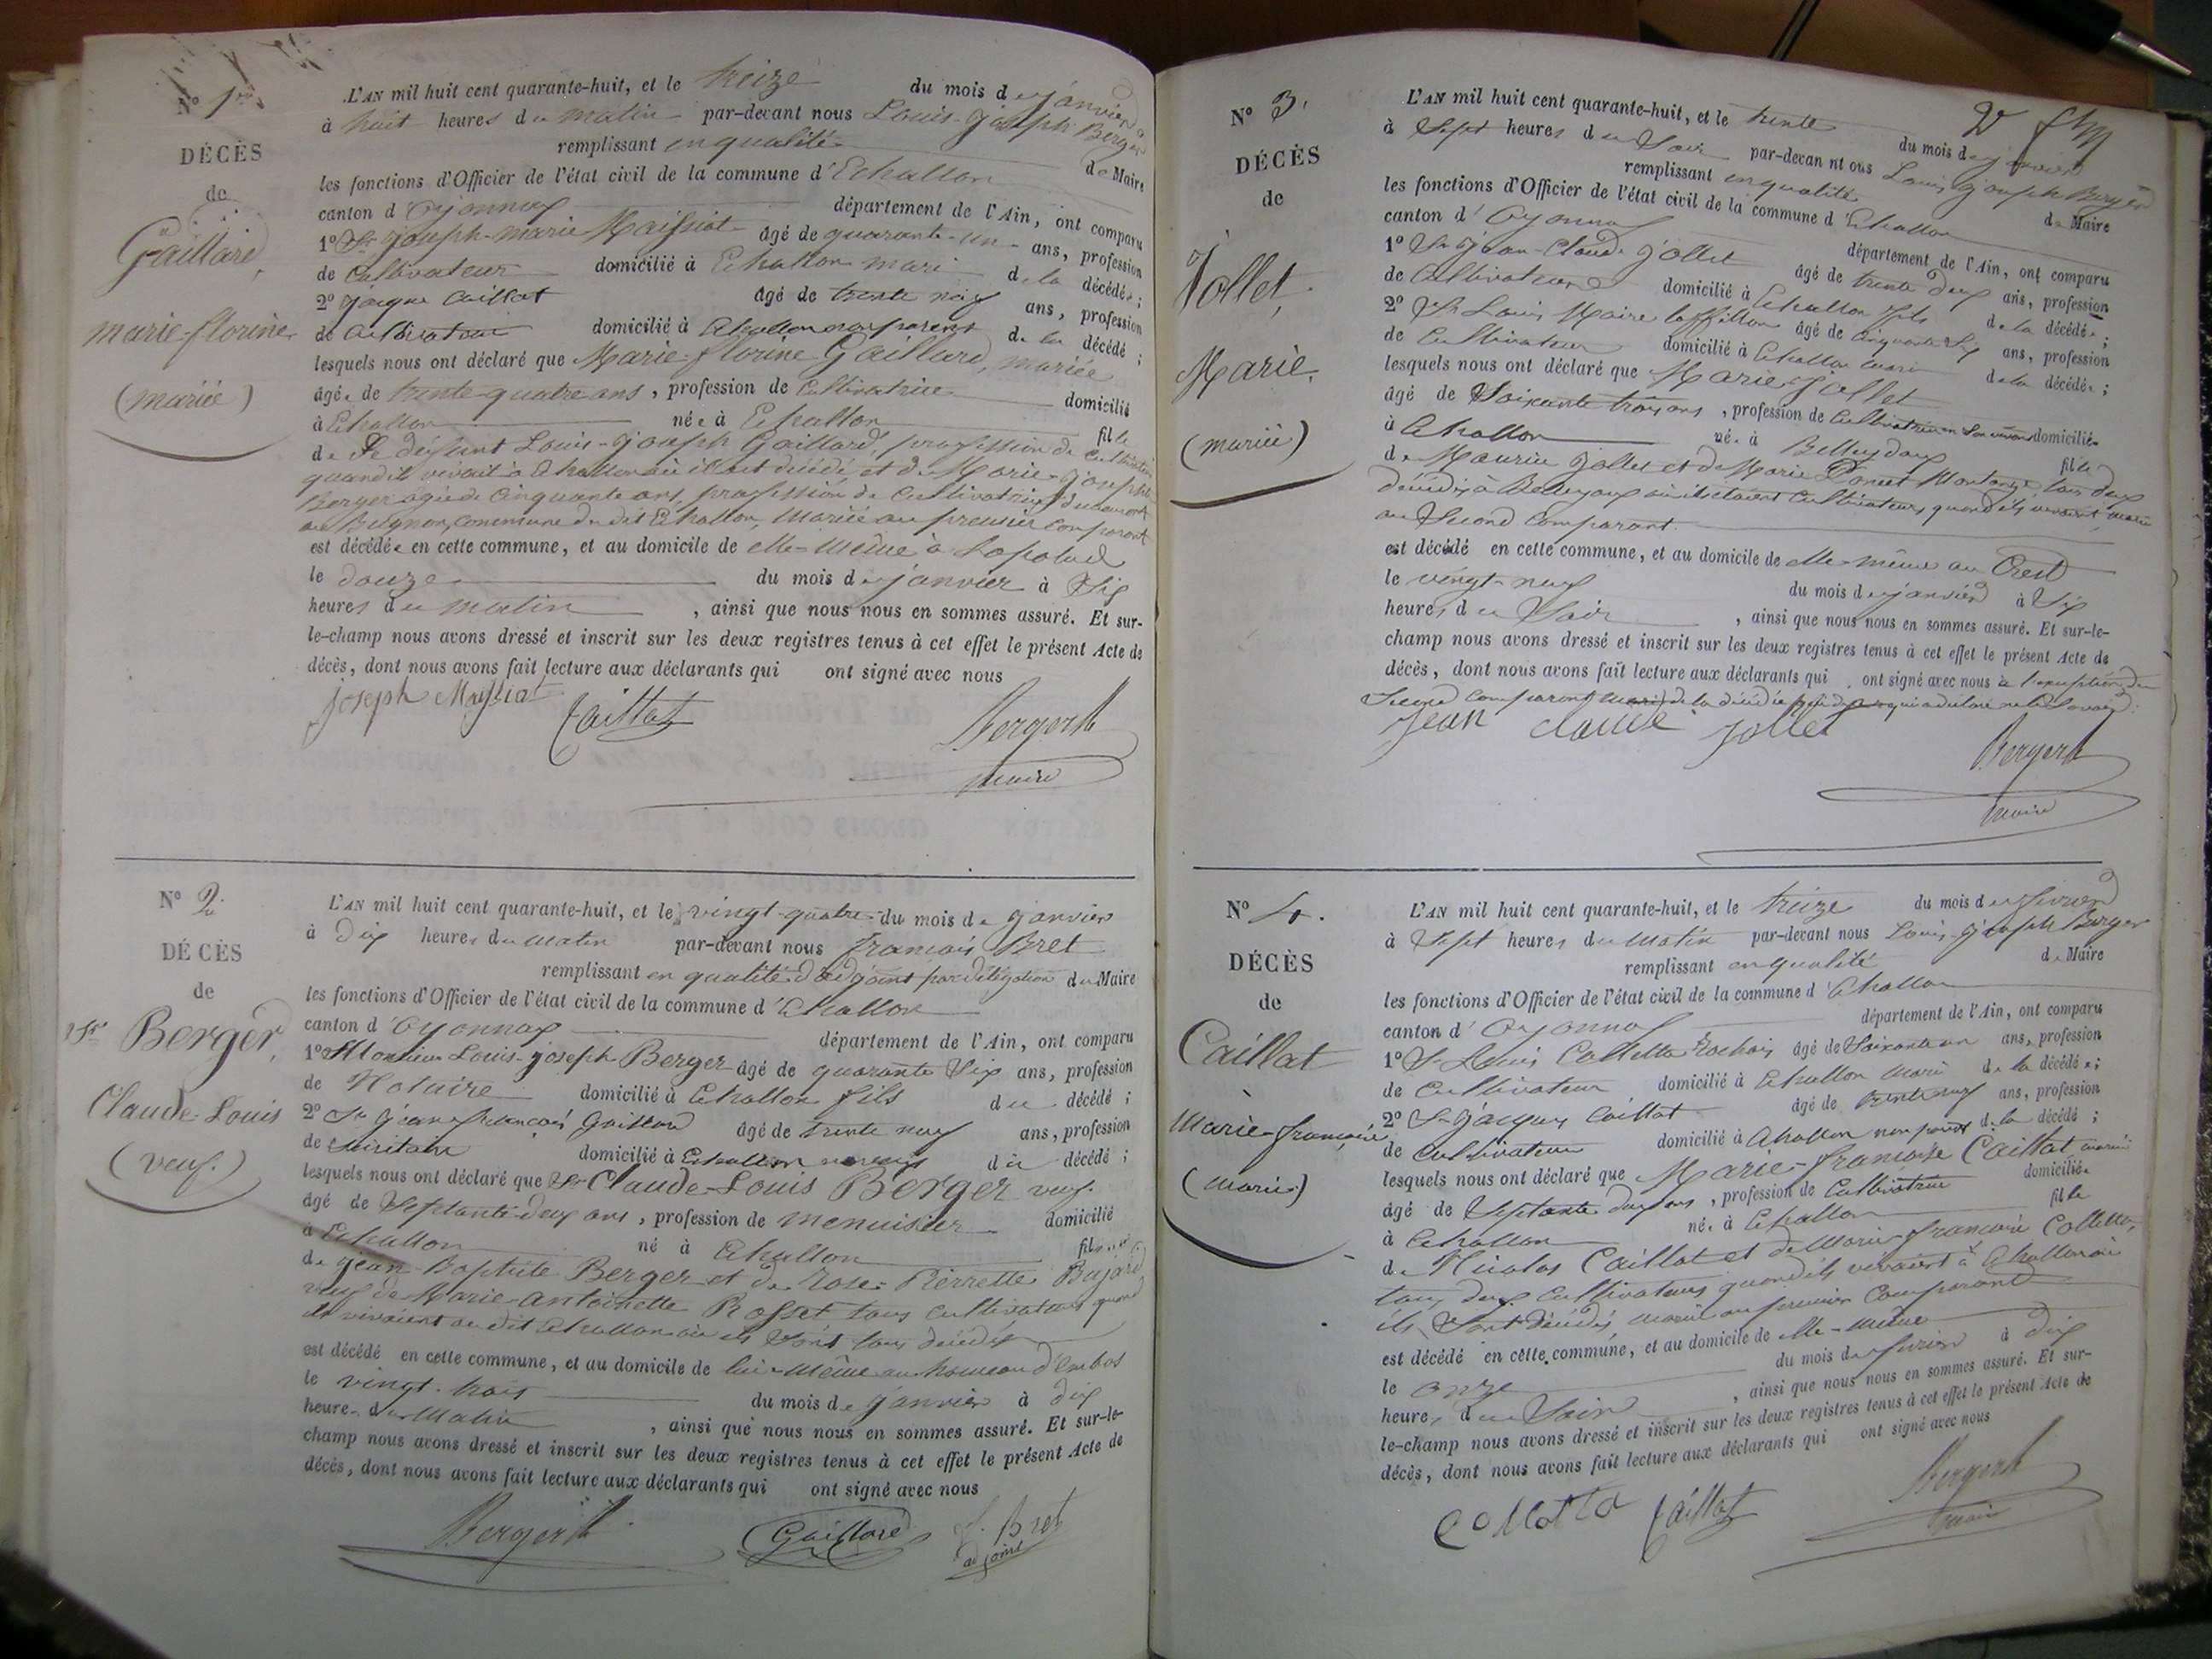 N° 1er
DÉCÈS
de
Gaillard,
marie-florine
(mariée)
L'AN mil huit cent quarante-huit, et le treize du mois de janvier
à huit heures du matin par-devant nous Louis-joseph Berger
remplissant en qualité de Maire
les fonctions d'Officier de l'état civil de la commune d'Echallon
canton d'Oyonnax département de l'Ain, ont comparu
1° Sr joseph-marie Maissiat âgé de quarante-un ans, profession
de Cultivateur domicilié à Echallon mari de la décédée;
2° jacque Caillat âgé de trente neuf ans, profession
de Cultivateur domicilié à Echallon non parent de la décédé;
lesquels nous ont déclaré que Marie-florine Gaillard, mariée
âgée de trente quatre ans, profession de Cultivatrice domicilié
à Echallon née à Echallon fille
de Le défunt Louis-joseph Gaillard, profession de Cultivateur
quand il vivait à Echallon où il est décédé, et de Marie-josephte
Berger âgée de Cinquante ans, profession de Cultivatrice demeurant
au Buignon, commune du dit Echallon, Mariée au premier comparant
est décédée en cette commune, et au domicile de elle-même à
le douze du mois de janvier à Six
heures du matin, ainsi que nous nous en sommes assuré. Et sur-
le-champ nous avons dressé et inscrit sur les deux registres tenus à cet effet le présent Acte de
décès, dont nous avons fait lecture aux déclarants qui ont signé avec nous
joseph Massiat Caillat Berger
maire
N° 2
DÉCÈS
de
Sr Berger,
Claude-Louis
(veuf.)
L'AN mil huit cent quarante-huit, et le vingt-quatre du mois de janvier
à dix heures du matin par-devant nous françois Bret
remplissant en qualité d'adjoint par délégation du Maire
les fonctions d'Officier de l'état civil de la commune d'Echallon
canton d'Oyonnax département de l'Ain, ont comparu
1° Monsieur Louis-joseph Berger âgé de quarante Six ans, profession
de Notaire domicilié à Echallon fils du décédé;
2° Sr jean françois Gaillard âgé de trente neuf ans, profession
de domicilié à Echallon du décédé;
lesquels nous ont déclaré que Sr Claude-Louis Berger veuf
âgé de Septante-deux ans, profession de menuisier domicilié
à Echallon né à Echallon fils
de jean-Baptiste Berger et de Rose-Pierrette Bujard
veuf de Marie-Antoinette Rosset tous cultivateurs quand
ils vivaient au dit Echallon où ils Sont tous décédés
est décédé en cette commune, et au domicile de lui-même au hameau d'
le vingt-trois du mois de janvier à dix
heure du Matin, ainsi que nous nous en sommes assuré. Et sur-le-
champ nous avons dressé et inscrit sur les deux registres tenus à cet effet le présent Acte de
décès, dont nous avons fait lecture aux déclarants qui ont signé avec nous
Berger Gaillard f. Bret
adjoint
N° 3.
DÉCÈS
de
Jollet,
Marie.
(mariée)
L'AN mil huit cent quarante-huit, et le trente du mois de janvier
à Sept heures du Soir par-devan nt ous Louis joseph Berger
remplissant en qualité de Maire
les fonctions d'Officier de l'état civil de la commune d'Echallon
canton d'Oyonnax département de l'Ain, ont comparu
1° Sr jean-Claude jollet âgé de trente deux ans, profession
de Cultivateur domicilié à Echallon fils de la décédée;
2° Sr Louis Maire âgé de Cinquante Six ans, profession
de Cultivateur domicilié à Echallon mari de la décédée;
lesquels nous ont déclaré que Marie jollet
âgé de Soixante trois ans, profession de Cultivatrice domiciliée
à Echallon née à Belleydoux fille
de Maurice jollet et de Marie Poncet Montange, tous deux
décédés à Belleydoux où ils étaient Cultivateurs quand ils vivaient, mariée
au Second Comparant.
est décédé en cette commune, et au domicile de elle-même au Crest
le vingt-neuf du mois de janvier à Six
heures du Soir, ainsi que nous nous en sommes assuré. Et sur-le-
champ nous avons dressé et inscrit sur les deux registres tenus à cet effet le présent Acte de
décès, dont nous avons fait lecture aux déclarants qui ont signé avec nous à l'exception du
Second comparant mari de la décédée qui a déclaré ne le Savoir.
jean claude jollet Berger
maire
N° 4.
DÉCÈS
de
Caillat
Marie-françoise
(mariée)
L'AN mil huit cent quarante-huit, et le treize du mois de fevrier
à Sept heures du Matin par-devant nous Louis-joseph Berger
remplissant en qualité de Maire
les fonctions d'Officier de l'état civil de la commune d'Echallon
canton d'Oyonnax département de l'Ain, ont comparu
1° Sr Louis Colletta Rochais âgé de Soixante un ans, profession
de Cultivateur domicilié à Echallon Mari de la décédée;
2° Sr jacques Caillat âgé de trente neuf ans, profession
de Cultivateur domicilié à Echallon non parent de la décédé;
lesquels nous ont déclaré que Marie-françoise Caillat mariée
âgé de Septante deux ans, profession de Cultivatrice domiciliée
à Echallon née à Echallon fille
de Nicolas Caillat et de Marie françoise Colletta,
tous deux Cultivateurs quand ils vivaient à Echallon où
ils Sont décédés, mariée au premier Comparant
est décédé en cette commune, et au domicile de elle-même
le onze du mois de fevrier à dix
heures du Soir, ainsi que nous nous en sommes assuré. Et sur-
le-champ nous avons dressé et inscrit sur les deux registres tenus à cet effet le présent Acte de
décès, dont nous avons fait lecture aux déclarants qui ont signé avec nous
Collatta Caillat Berger
maire